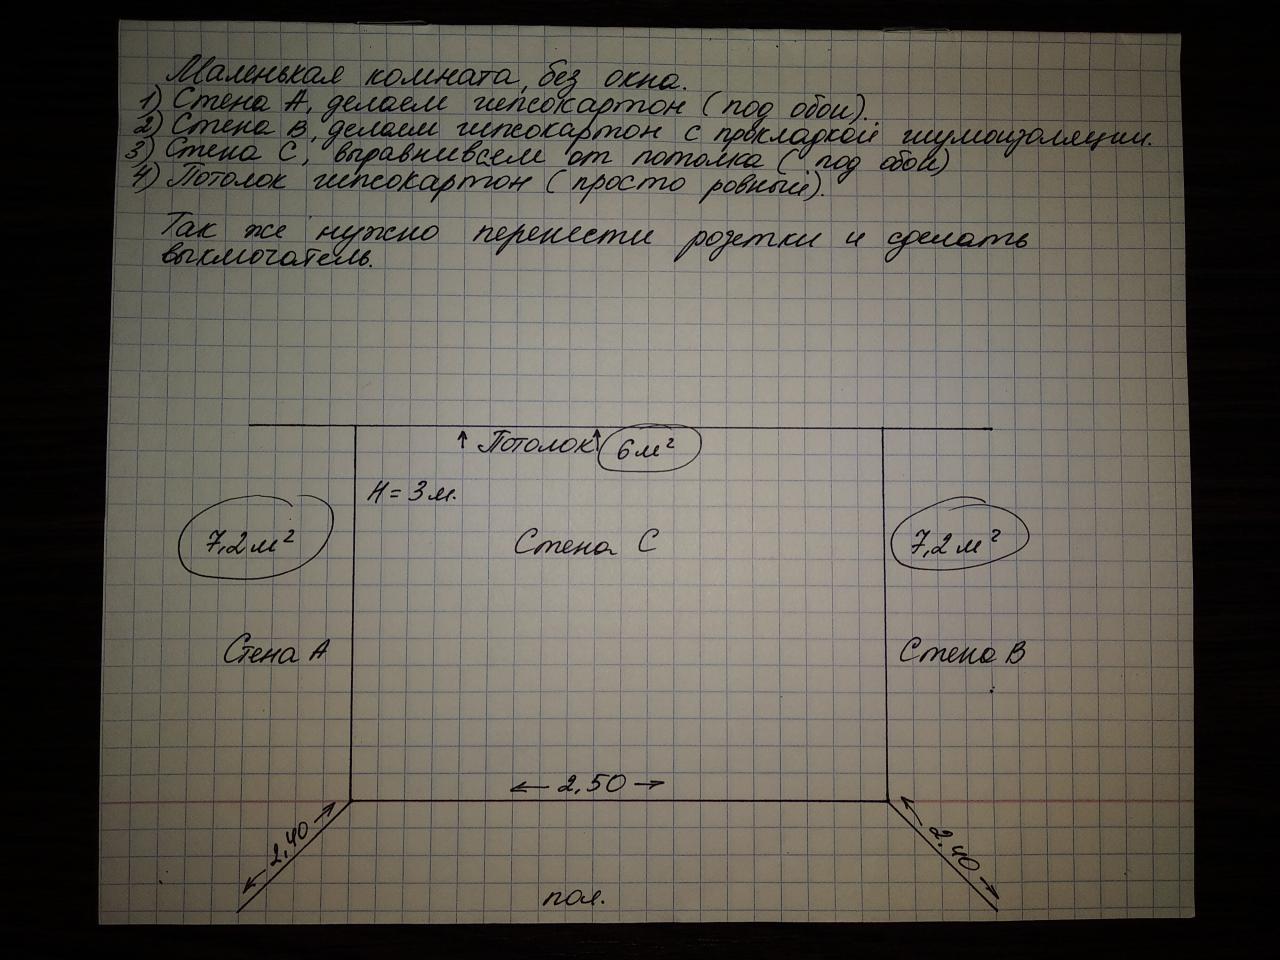 Маленькая комната, без окна.
1) Стена А, делаем гипсокартон (под обои).
2) Стена В, делаем гипсокартон с прокладкой шумоизоляции.
3) Стена С, выравнивсем от потолка (под обои)
4) Потолок гипсокартон (просто ровный).
Так же нужно перенести розетки и сделать
выключатель.
↑ Потолок ↑ 6 м²
H = 3 м.
7,2 м²
Стена С
7,2 м²
Стена А
Стена В
← 2,50 →
← 2,40 →
← 2.40 →
пол.